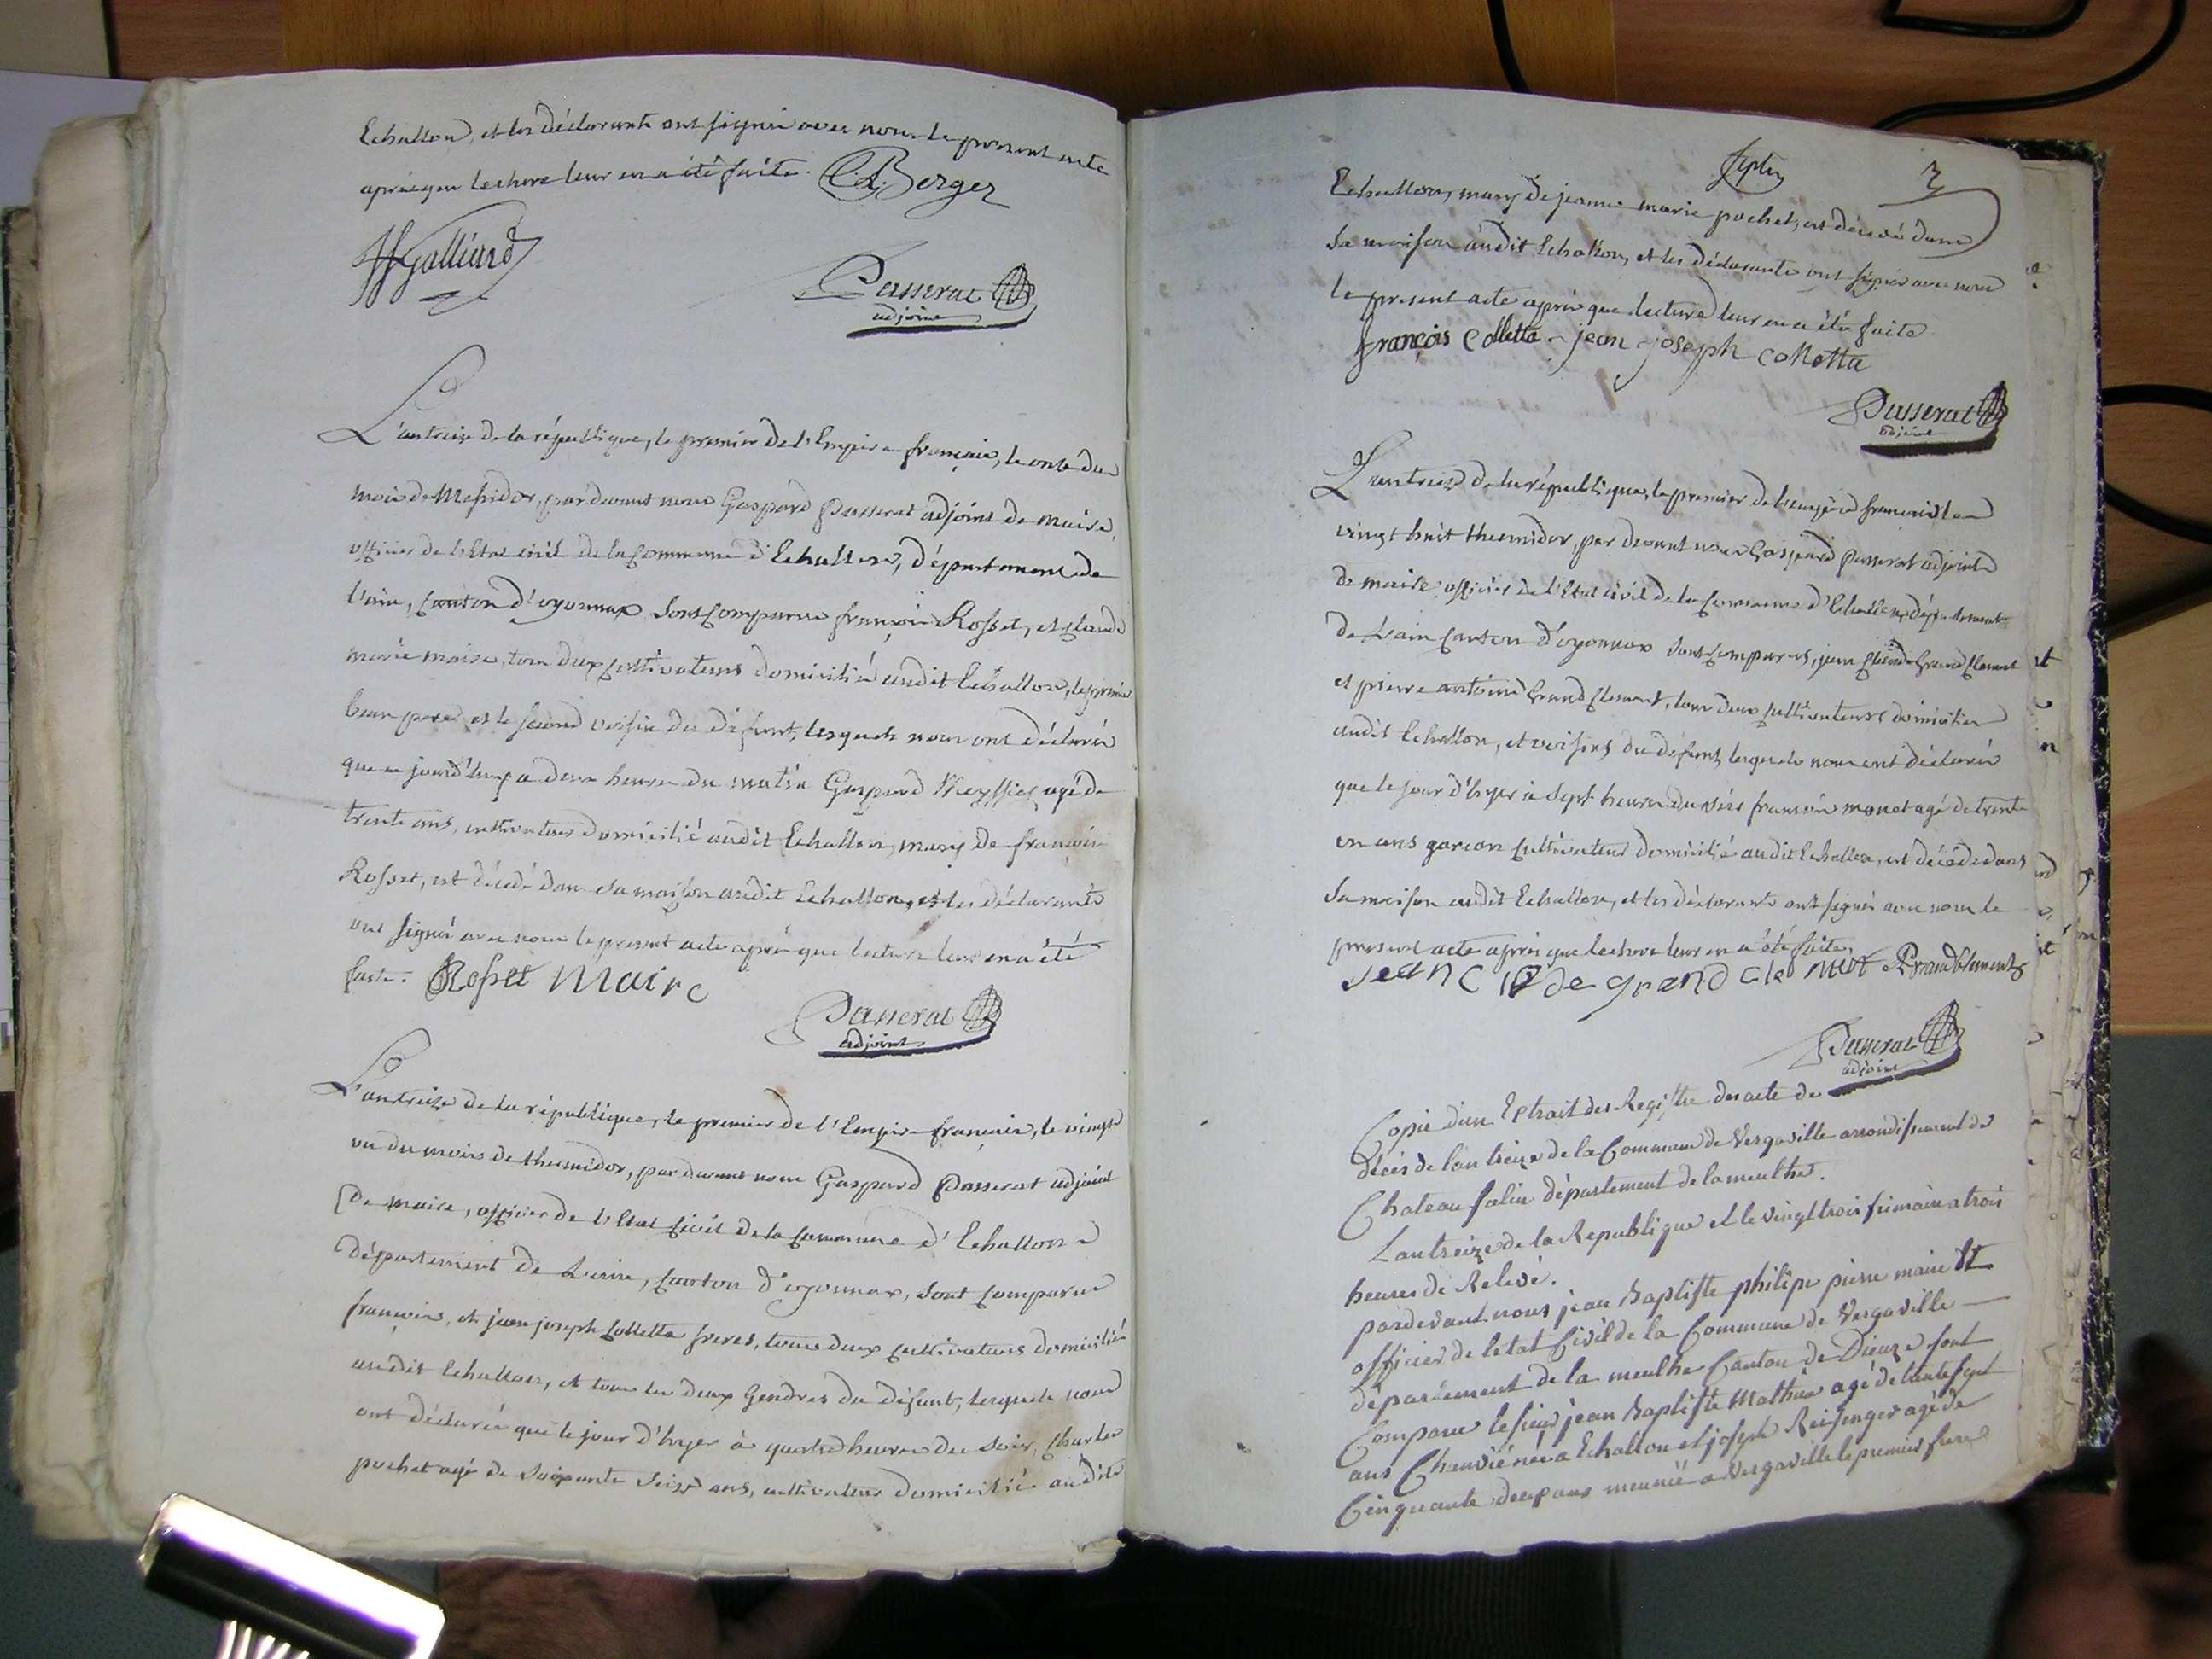 Echallon, et les déclarants ont signé avec nous le present acte
après que lecture leur en a été faite. C.A. Berger
JF Galliard
Passerat
adjoint
L'an treize de la république, le premier de l'Empire français, le onze du
mois de Messidor, par devant nous Gaspard Passerat adjoint de maire,
officier de l'Etat civil de la Commune d'Echallon, département de
l'ain, Canton d'oyonnax sont Comparus françois Rosset, et Claude
marie maire, tous deux Cultivateurs domicilié audit Echallon, le premier
beau pere et le second voisin du défunt, lesquels nous ont déclaré
que ce jourd'huy a deux heures du matin Gaspard agé de
trente ans, cultivateur domicilié audit Echallon, mary de françoise
Rosset, est décédé dans sa maison audit Echallon, et les déclarants
ont signé avec nous le present acte après que lecture leur en a été
faite. Rosset Maire
Passerat
adjoint
L'an treize de la république, le premier de l'Empire français, le vingt
un du mois de thermidor, par devant nous Gaspard Passerat adjoint
de maire, officier de l'Etat Civil de la Commune d'Echallon
département de L'ain, Canton d'oyonnax, sont Comparus
françois, et jean joseph Colletta freres, tous deux cultivateurs domicilié
audit Echallon, et tous les deux Gendres du défunt, lesquels nous
ont déclaré que le jour d'hyer à quatre heures du soir, Charles
pochet agé de soixante seize ans, cultivateur domicilié audit
3
Echallon, mary de jeanne marie pochet, est décédé dans
sa maison audit Echallon, et les déclarants ont signé avec nous
le present acte après que lecture leur en a été faite
françois Colletta jean joseph colletta
Passerat
adjoint
L'an treize de la république, le premier de l'empire français le
vingt huit thermidor, par devant nous Gaspard Passerat adjoint
de maire officier de l'Etat civil de la Commune d'Echallon, département
de L'ain Canton d'oyonnax sont Comparus, jean Claude Grand Clement
et pierre antoine Grand Clement, tous deux Cultivateurs domicilier
audit Echallon, et voisins du défunt, lesquels nous ont déclaré
que le jour d'hyer à sept heures du soir françois monet agé de trente
un ans garçon Cultivateur domicilié audit Echallon, est décédé dans
sa maison audit Echallon, et les déclarants ont signé avec nous le
present acte après que lecture leur en a été faite,
jean clode grand cle ment Grandclement
Passerat
adjoint
Copie d'un Extrait des Registre des acte de
décès de l'an treize de la Commune de Vergaville arrondissement de
Chateau salin département de la meulhe.
L'an treize de la Republique et le vingt trois frimaire a trois
heures de Relevé.
pardevant nous jean baptiste philipe pierre maire Et
officier de l'etat Civil de la Commune de Vergaville
département de la meulhe Canton de Dieuze sont
Comparu le sieur jean baptiste Mathieu agé de trente sept
ans né a Echallon et joseph Reisinger agé de
Cinquante deux ans meunié a Vergaville le premier frere